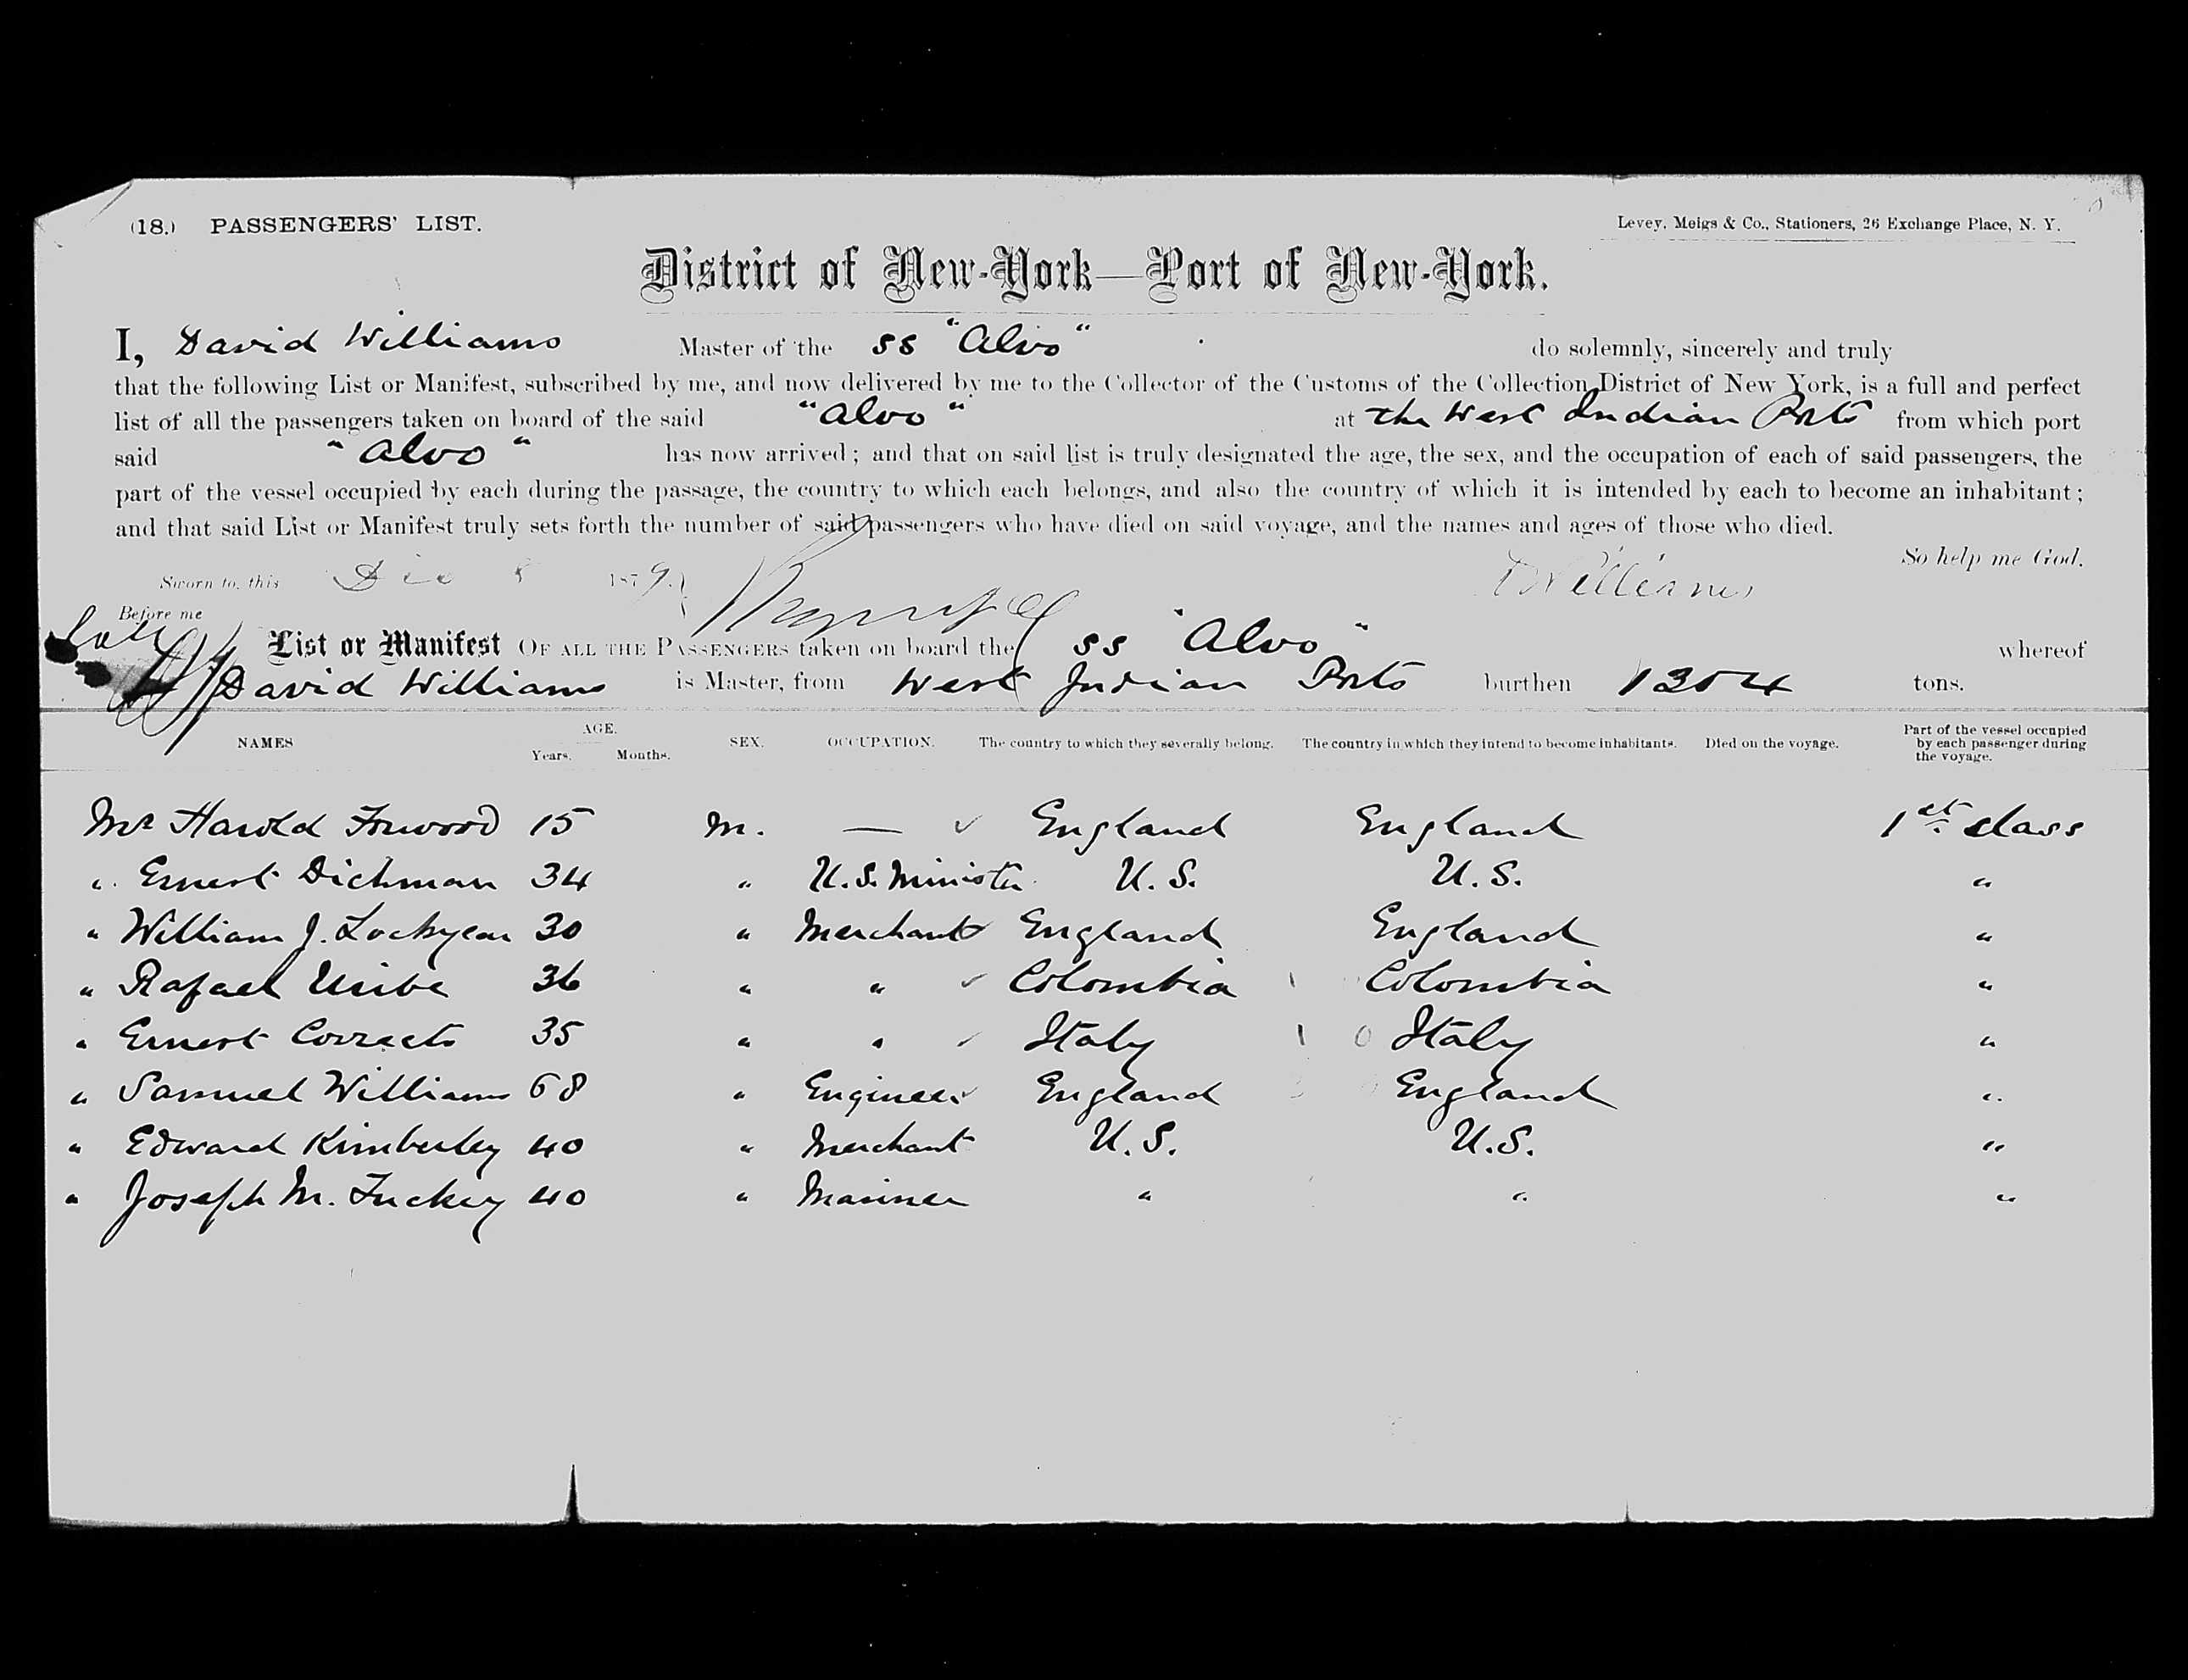 (18.) PASSENGERS' LIST.
Levey, Meigs & Co., Stationers, 26 Exchange Place, N. Y.
District of New-York—Port of New-York.
I, David Williams Master of the SS "Alvo" do solemnly, sincerely and truly
that the following List or Manifest, subscribed by me, and now delivered by me to the Collector of the Customs of the Collection District of New York, is a full and perfect
list of all the passengers taken on board of the said "Alvo" at the West Indian Ports from which port
said "Alvo" has now arrived; and that on said list is truly designated the age, the sex, and the occupation of each of said passengers, the
part of the vessel occupied by each during the passage, the country to which each belongs, and also the country of which it is intended by each to become an inhabitant;
and that said List or Manifest truly sets forth the number of said passengers who have died on said voyage, and the names and ages of those who died.
So help me God.
Sworn to, this Dec 8 1879. D Williams
Before me
List or Manifest OF ALL THE PASSENGERS taken on board the SS "Alvo" whereof
David Williams is Master, from West Indian Ports burthen 1354 tons.
NAMES AGE. Years. Months. SEX. OCCUPATION. The country to which they severally belong. The country in which they intend to become inhabitants. Died on the voyage. Part of the vessel occupied by each passenger during the voyage.
Mr Harold Forwood 15 M. — England England 1st class
" Ernest Dichman 34 " U.S. Minister U.S. U.S. "
" William J. Lockyear 30 " Merchant England England "
" Rafael Uribe 36 " " Colombia Colombia "
" Ernest 35 " " Italy Italy "
" Samuel Williams 68 " Engineer England England "
" Edward Kimberley 40 " Merchant U.S. U.S. "
" Joseph M. Tuckey 40 " Mariner " " "